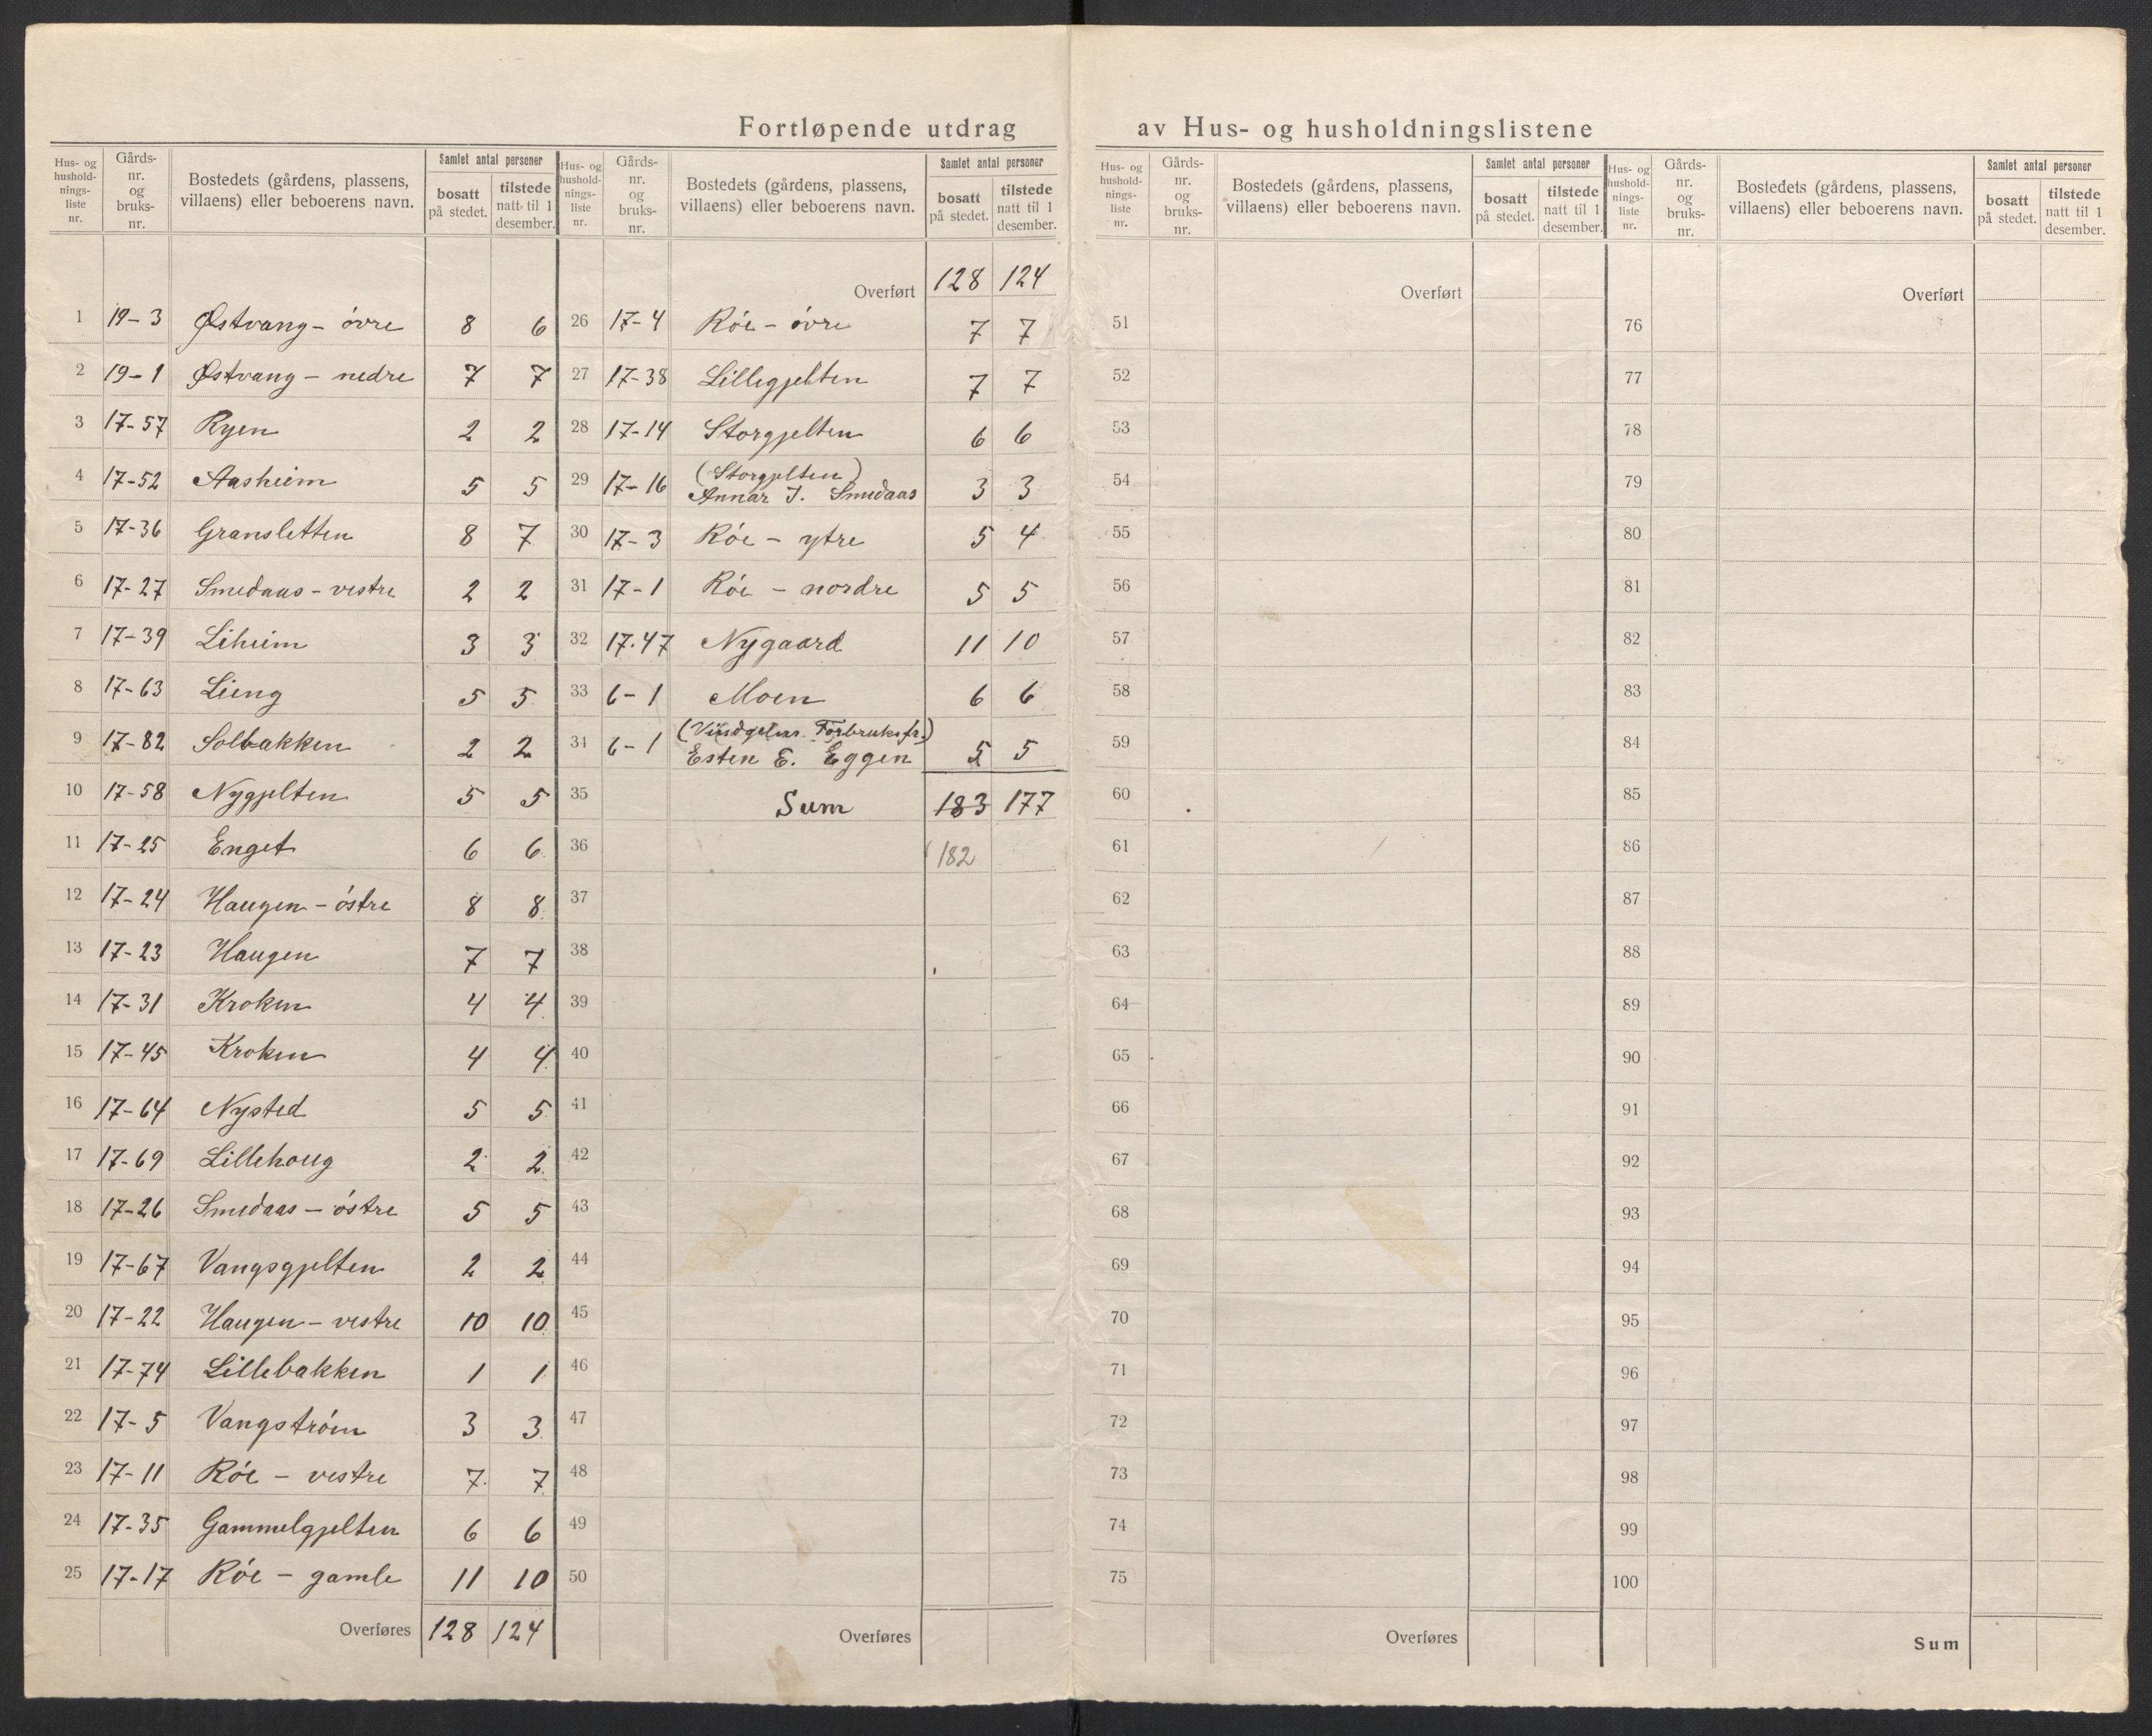 Fortløpende utdrag av Hus- og husholdningslistene
Hus- og husholdningsliste nr. | Gårds-nr. og bruks-nr. | Bostedets (gårdens, plassens, villaens) eller beboerens navn. | Samlet antal personer bosatt på stedet. | tilstede natt til 1 desember.
1 19-3 Østvang - óvre 8 6
2 19-1 Østvang - nedre 7 7
3 17-57 Ryen 2 2
4 17-52 Aasheim 5 5
5 17-36 Gransletten 8 7
6 17-27 Smedaas - vestre 2 2
7 17-39 Liheim 3 3
8 17-63 Lieng 5 5
9 17-82 Solbakken 2 2
10 17-58 Nygjelten 5 5
11 17-25 Enget 6 6
12 17-24 Haugen - óstre 8 8
13 17-23 Haugen 7 7
14 17-31 Kroken 4 4
15 17-45 Kroken 4 4
16 17-64 Nysted 5 5
17 17-69 Lillehoug 2 2
18 17-26 Smedaas - óstre 5 5
19 17-67 Vangsgjelten 2 2
20 17-22 Haugen - vestre 10 10
21 17-74 Lillebakken 1 1
22 17-5 Vangstróm 3 3
23 17-11 Róe - vestre 7 7
24 17-35 Gammelgjelten 6 6
25 17-17 Róe - gamle 11 10
Overføres 128 124
Hus- og husholdningsliste nr. | Gårds-nr. og bruks-nr. | Bostedets (gårdens, plassens, villaens) eller beboerens navn. | Samlet antal personer bosatt på stedet. | tilstede natt til 1 desember.
Overført 128 124
26 17-4 Róe - óvre 7 7
27 17-38 Lillegjelten 7 7
28 17-14 Storgjelten 6 6
29 17-16 (Storgjelten)
Annar J. Smedaas 3 3
30 17-3 Róe - ytre 5 4
31 17-1 Róe - nordre 5 5
32 17.47 Nygaard 11 10
33 6-1 Moen 6 6
34 6-1 Forbruksfr.)
Esten E. Eggen 5 5
35 Sum 183 177
36 182
37
38
39
40
41
42
43
44
45
46
47
48
49
50
Overføres
Hus- og husholdningsliste nr. | Gårds-nr. og bruks-nr. | Bostedets (gårdens, plassens, villaens) eller beboerens navn. | Samlet antal personer bosatt på stedet. | tilstede natt til 1 desember.
Overført
51
52
53
54
55
56
57
58
59
60
61
62
63
64
65
66
67
68
69
70
71
72
73
74
75
Overføres
Hus- og husholdningsliste nr. | Gårds-nr. og bruks-nr. | Bostedets (gårdens, plassens, villaens) eller beboerens navn. | Samlet antal personer bosatt på stedet. | tilstede natt til 1 desember.
Overført
76
77
78
79
80
81
82
83
84
85
86
87
88
89
90
91
92
93
94
95
96
97
98
99
100
Sum